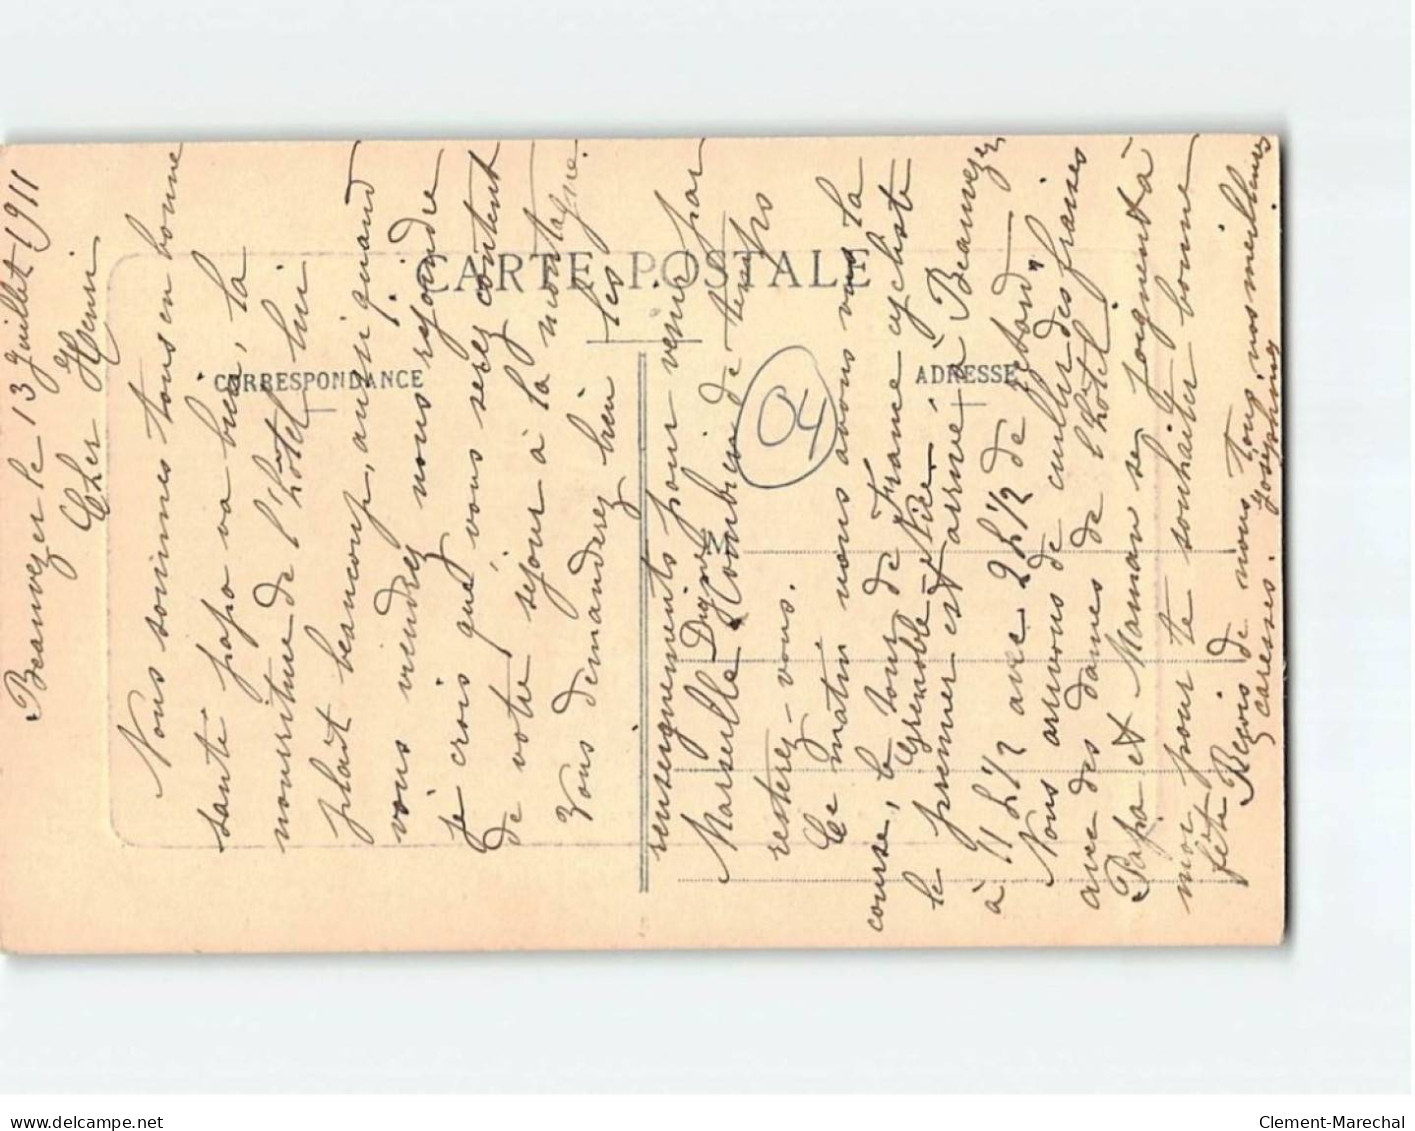 Beauvezer le 13 Juillet 1911
Cher Henri
Nous sommes tous en bonne
santé papa va bien, la
nourriture de l'hôtel lui
plait beaucoup, aussi quand
vous viendrez nous rejoindre
je crois que vous serez content
de votre séjour à la montagne.
Vous demanderez bien les
renseignements pour venir par
Marseille Digne Combien de temps
resterez-vous.
Ce matin nous avons vus la
course, le tour de France cycliste
Grenoble-Nice.
le premier est arrivé à Beauvezer
à 11 h 1/2 avec 2 h 1/2 de retard,
Nous arrivons de cueillir des fraises
avec des dames de l'hôtel
Papa et Maman se joignent à
moi pour te souhaiter bonne
fête
Reçois de nous tous, nos meilleures
caresses. Joséphine
CARTE POSTALE
CORRESPONDANCE
ADRESSE
M
04
delcampe.net
Clement-Marechal